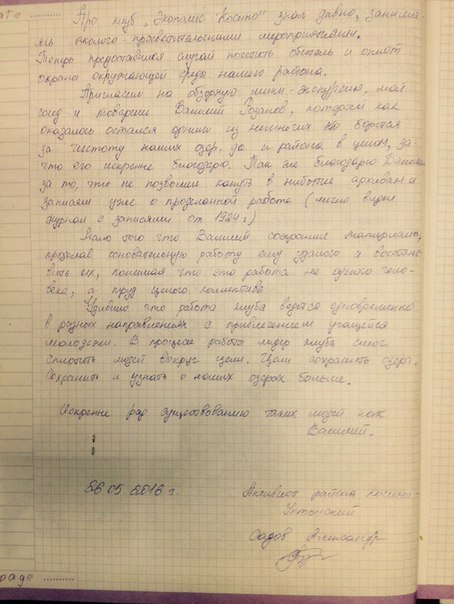 ate
Про клуб "Экополис Косино" знал давно, занима-
ясь эколого-просветительскими мероприятиями.
Теперь предоставился случай посетить обитель и оплот
охраны окружающей среды нашего района.
Пригласил на обзорную мини-экскурсию, мой
сосед и товарищ Василий Розанов, который как
оказалось остался одним из немногих кто борется
за чистоту наших озер, да и района в целом, за
что его искренне благодарю. Так же благодарю
за то, что не позволил кануть в небытие архивам и
записям уже о проделанной работе (лично видел
журнал с записями от 1924 г.)
Мало того что Василий сохранил материалы,
проделав основательную работу ему удалось и восстано-
вить их, понимая что это работа не одного чело-
века, а труд целого коллектива.
Удивило что работа клуба ведется одновременно
в разных направлениях с привлечением учащейся
молодежи. В процессе работы лидер клуба смог
сплотить людей вокруг цели. Цели сохранить озера.
Сохранить и узнать о наших озерах больше.
Искренне рад существованию таких людей как
Василий.
26.05.2016 г.
Активист района Косино-
Ухтомский
Садов Александр
page